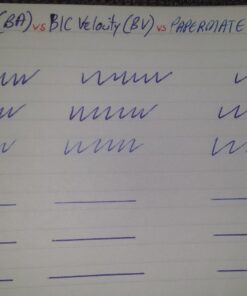 (BA) vs BIC Velocity (BV) vs PAPERMATE